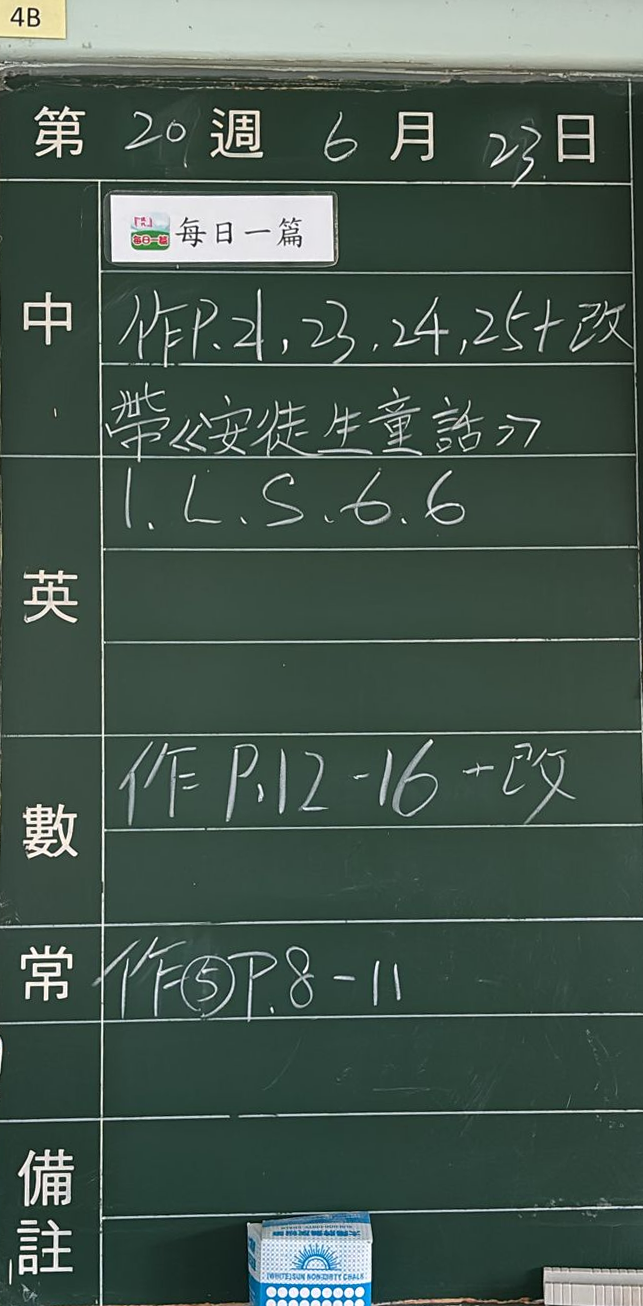 4B
第 20 週 6 月 23 日
中
每日一篇
作P.21,23,24,25+改
帶《安徒生童話》
英
1. L.S.6.6
數
作 P.12-16+改
常
作⑤P.8-11
備註
(WHITE)SUN NONDIRTY CHALK